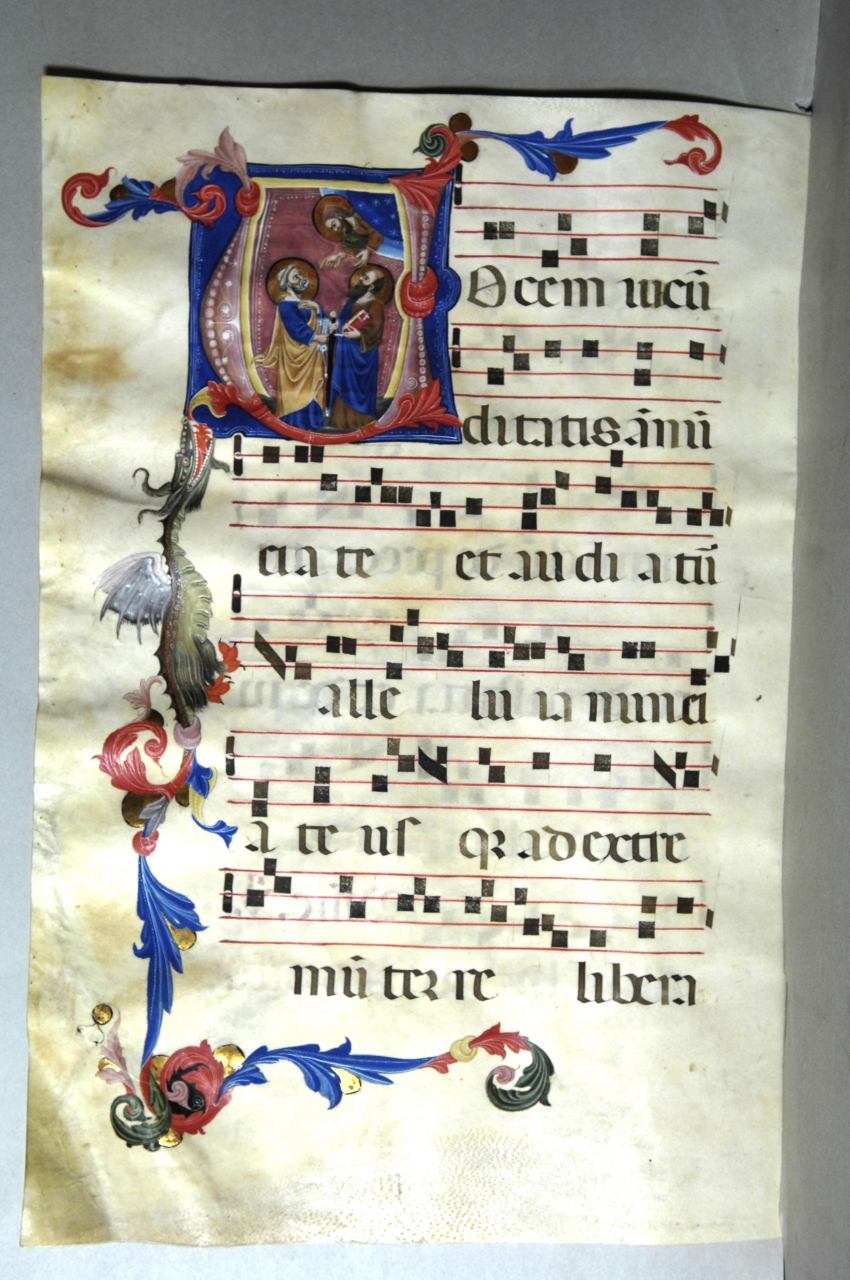 Vocem iucū
ditatis ānū
cia te et audi atū
alle lu ia nunci
a te us qƺ ad extre
mū terre libera